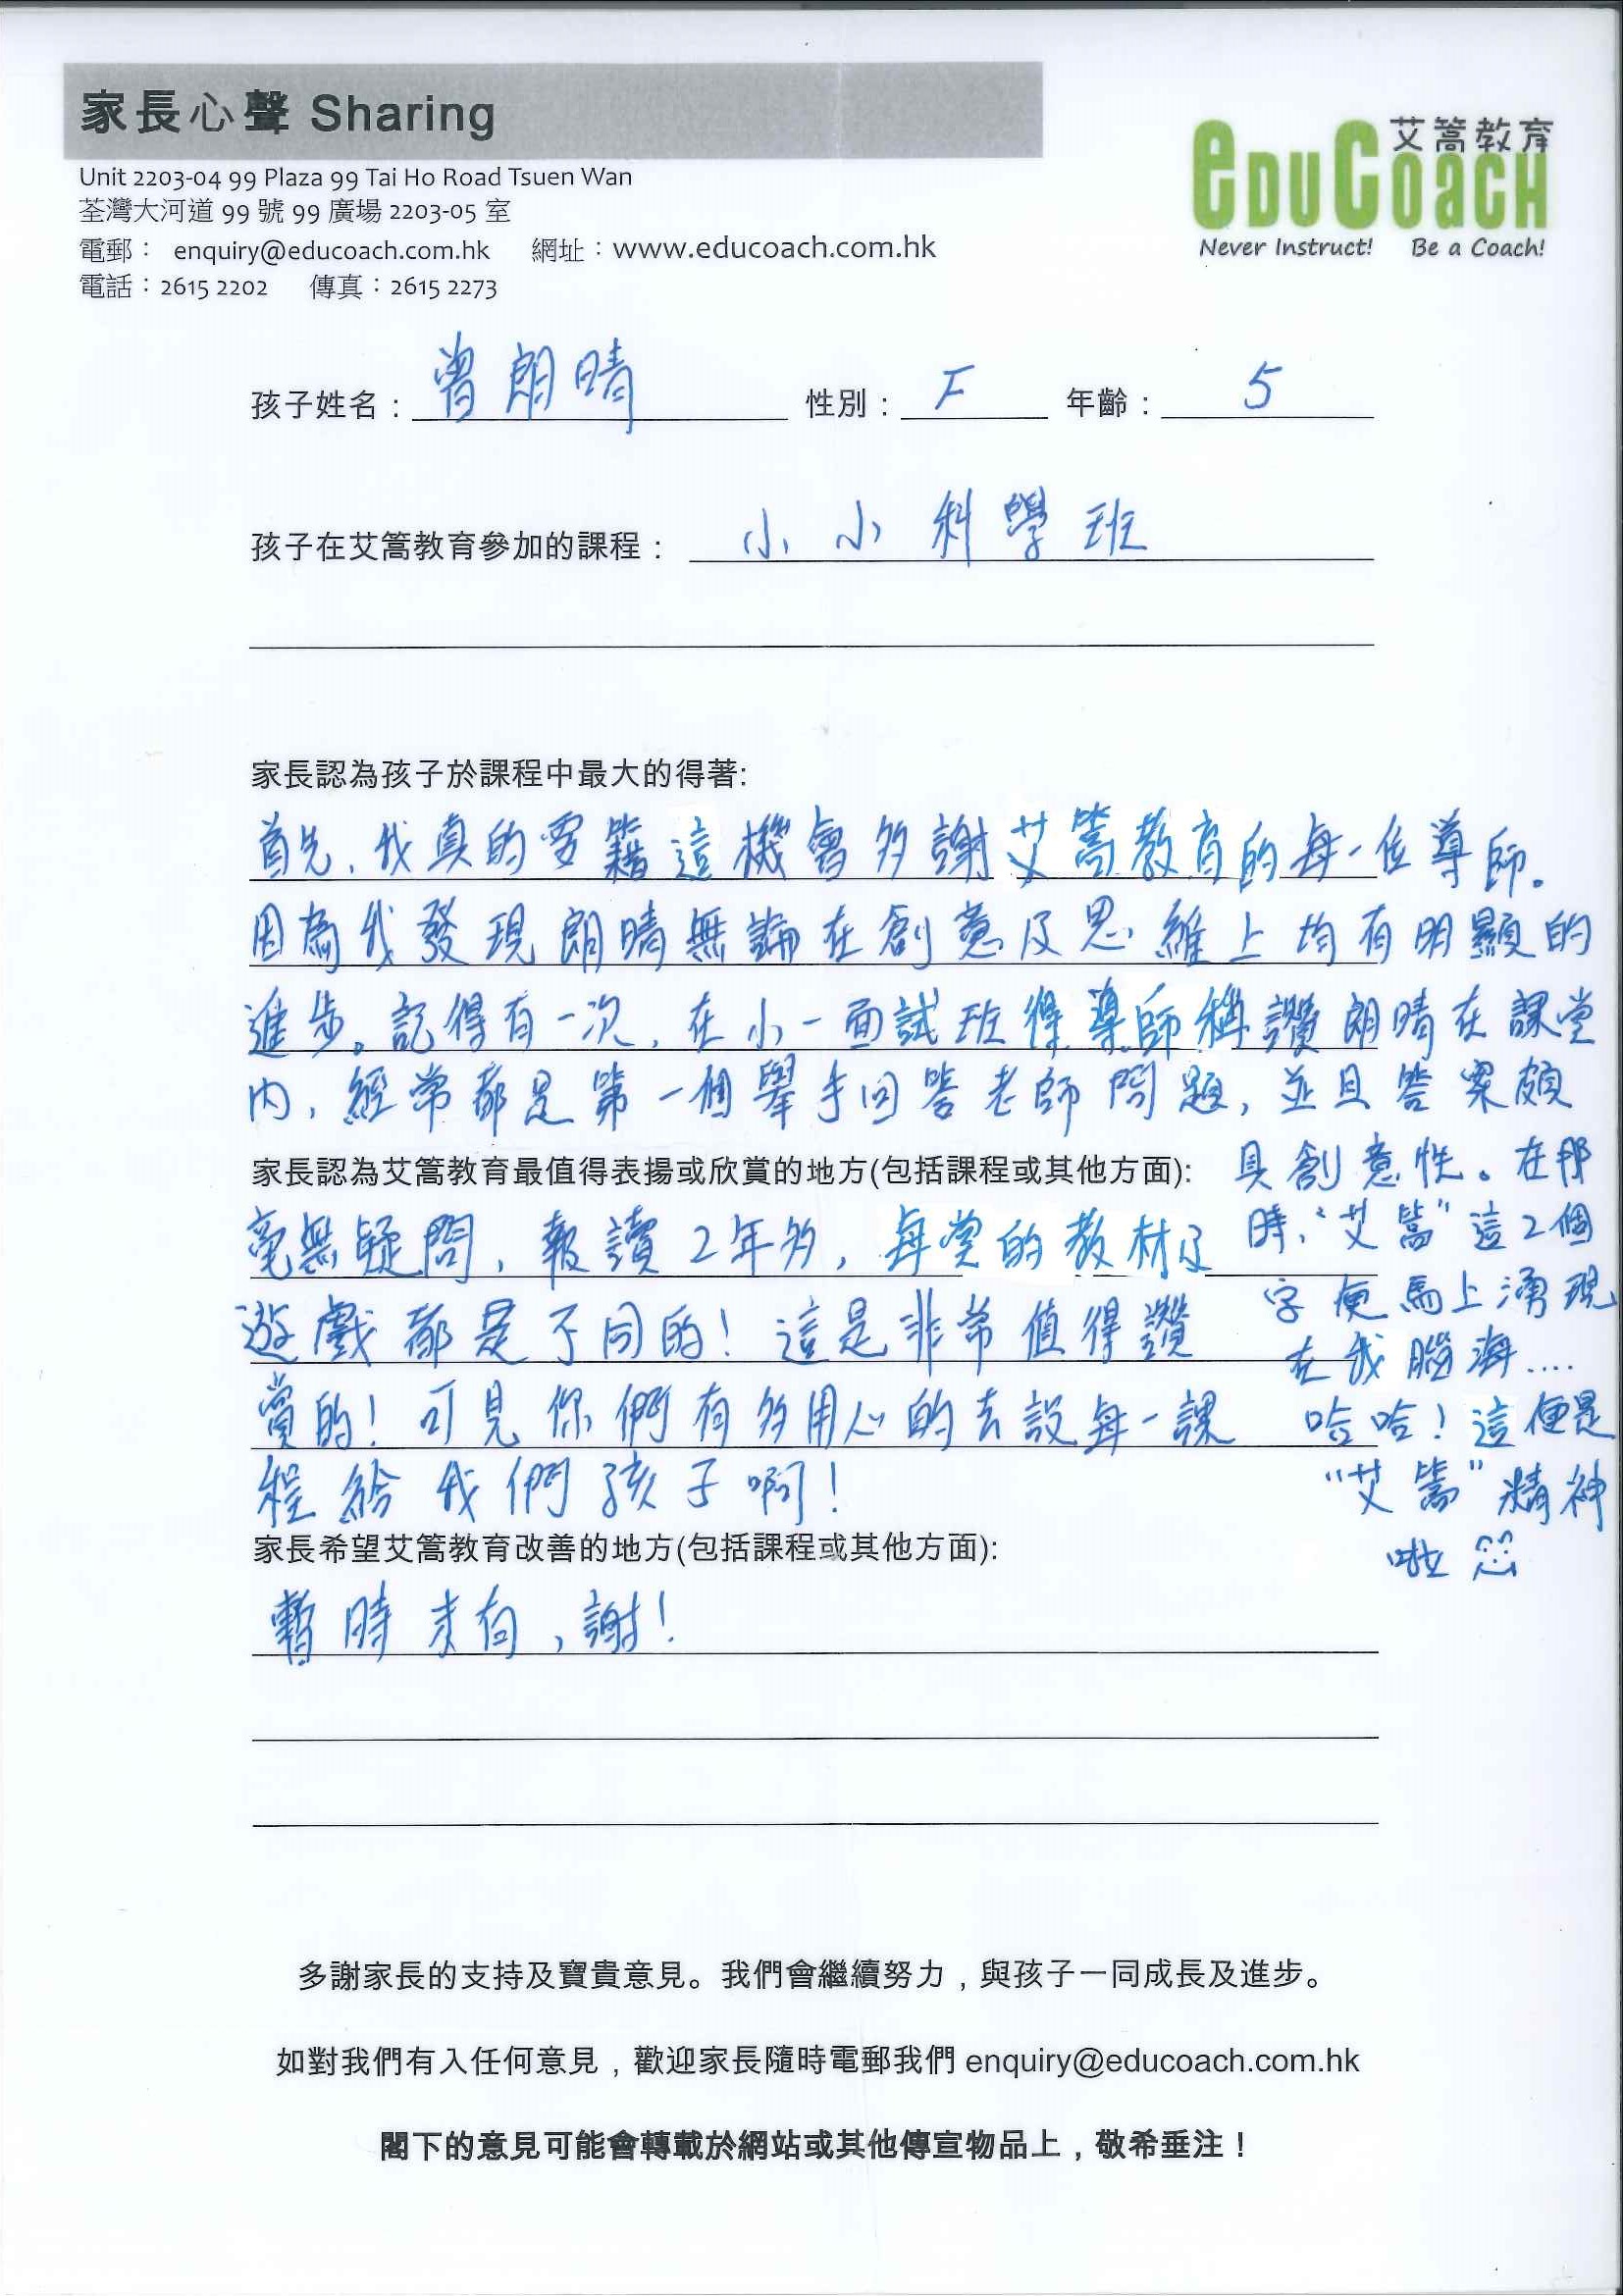 家長心聲 Sharing
艾篙教育
EDUCOACH
Never Instruct! Be a Coach!
Unit 2203-04 99 Plaza 99 Tai Ho Road Tsuen Wan
荃灣大河道 99 號 99 廣場 2203-05 室
電郵： enquiry@educoach.com.hk 網址：www.educoach.com.hk
電話：2615 2202 傳真：2615 2273
孩子姓名：曾朗晴 性別：F 年齡：5
孩子在艾篙教育參加的課程： 小小科學班
家長認為孩子於課程中最大的得著:
首先，我真的要籍這機會多謝艾篙教育的每一位導師。
因為我發現朗晴無論在創意及思維上均有明顯的
進步。記得有一次，在小一面試班得導師稱讚朗晴在課堂
內，經常都是第一個舉手回答老師問題，並且答案頗
具創意性。在那
時，“艾篙”這2個
字便馬上湧現
在我腦海....
哈哈！這便是
“艾篙”精神
啦
家長認為艾篙教育最值得表揚或欣賞的地方(包括課程或其他方面):
毫無疑問，報讀2年多，每堂的教材及
遊戲都是不同的！這是非常值得讚
賞的！可見你們有多用心的去設每一課
程給我們孩子啊！
家長希望艾篙教育改善的地方(包括課程或其他方面):
暫時未有，謝！
多謝家長的支持及寶貴意見。我們會繼續努力，與孩子一同成長及進步。
如對我們有入任何意見，歡迎家長隨時電郵我們 enquiry@educoach.com.hk
閣下的意見可能會轉載於網站或其他傳宣物品上，敬希垂注！